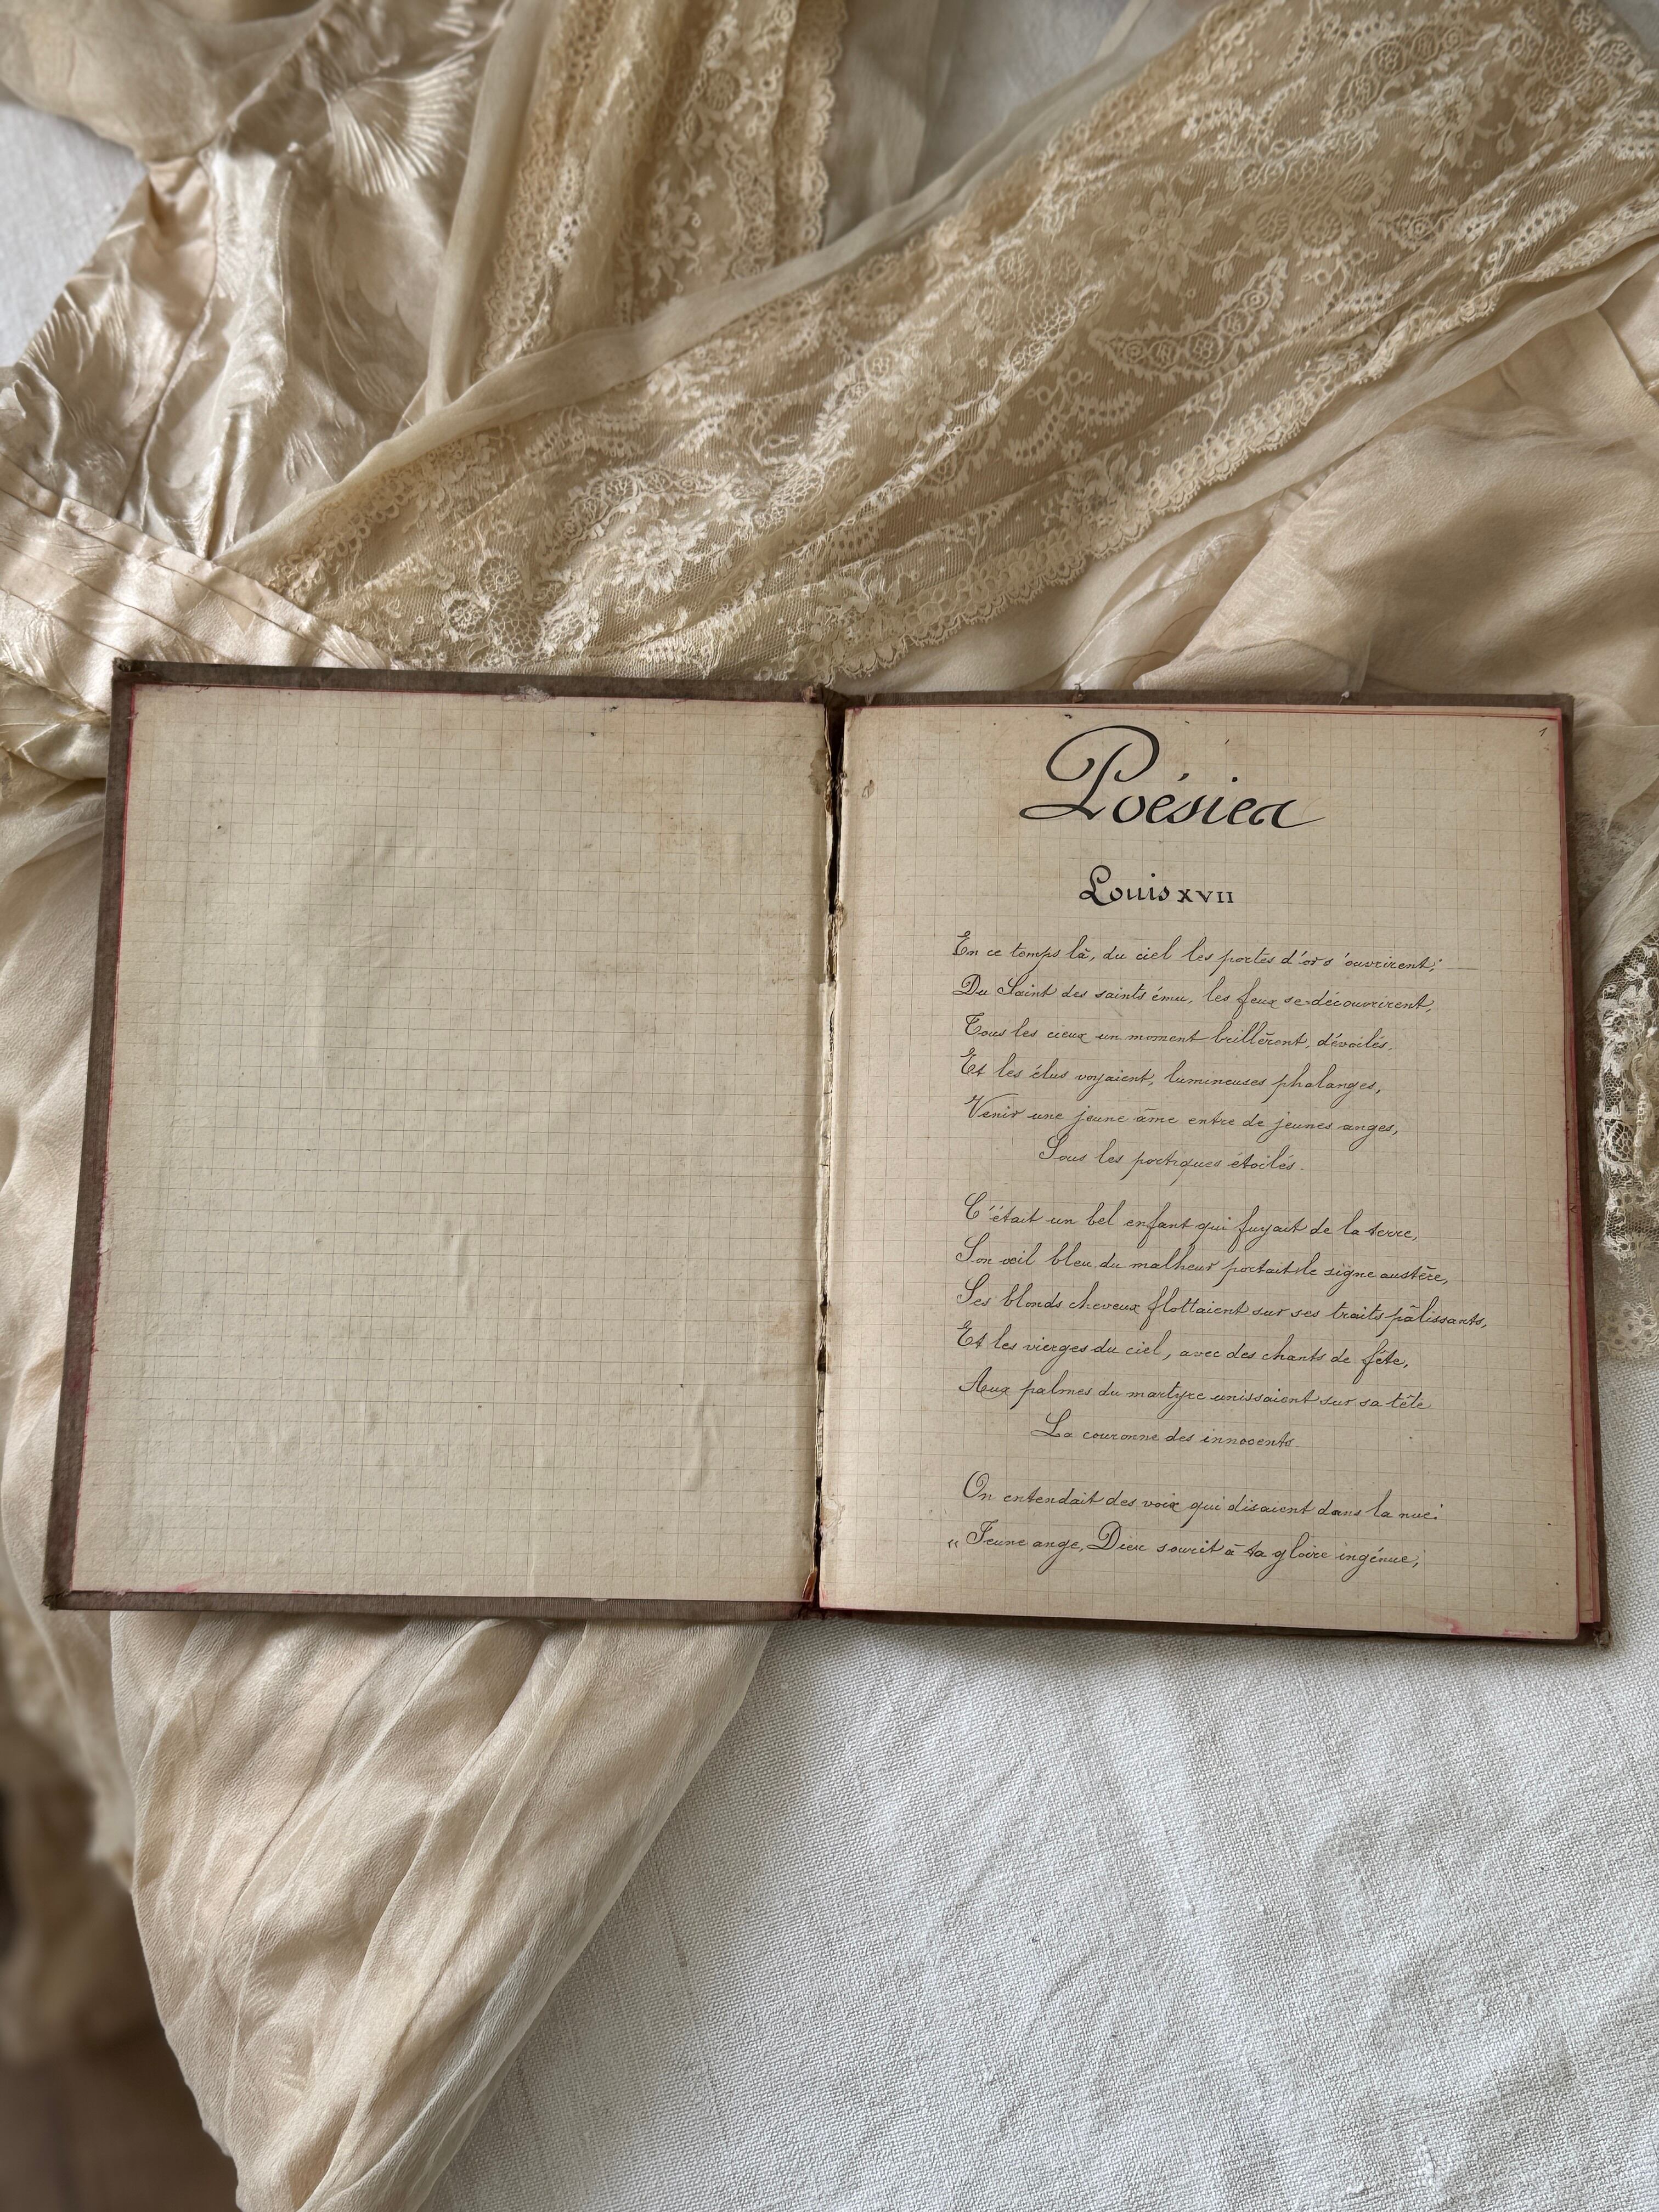 1
Poésies
Louis XVII
En ce temps là, du ciel les portes d'or s'ouvrirent;
Du Saint des saints ému, les feux se découvrirent,
Tous les cieux un moment brillèrent, dévoilés.
Et les élus voyaient, lumineuses phalanges,
Venir une jeune âme entre de jeunes anges,
Sous les portiques étoilés.
C'était un bel enfant qui fuyait de la terre,
Son œil bleu du malheur portait le signe austère,
Ses blonds cheveux flottaient sur ses traits pâlissants,
Et les vierges du ciel, avec des chants de fête,
Aux palmes du martyre unissaient sur sa tête
La couronne des innocents.
On entendait des voix qui disaient dans la nue:
"Jeune ange, Dieu sourit à ta gloire ingénue;